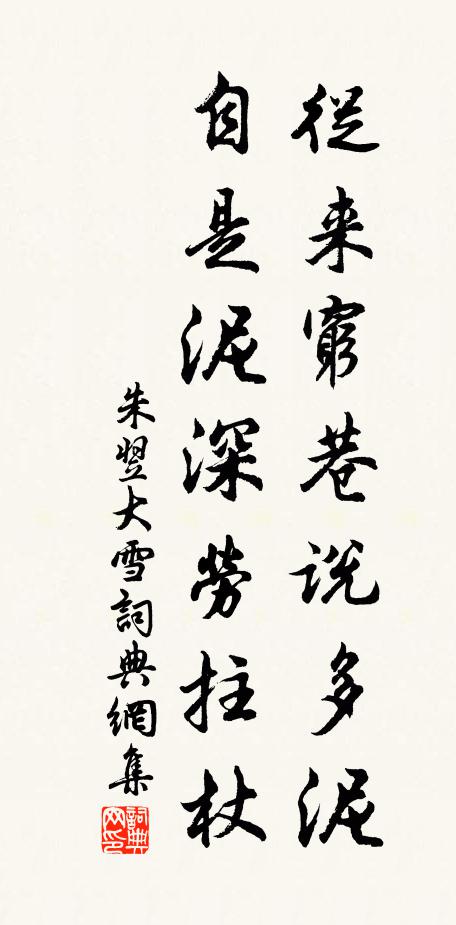 從来窮巷説多泥
自是泥深勞拄杖
朱翌大雪詞典網集
詞典网印